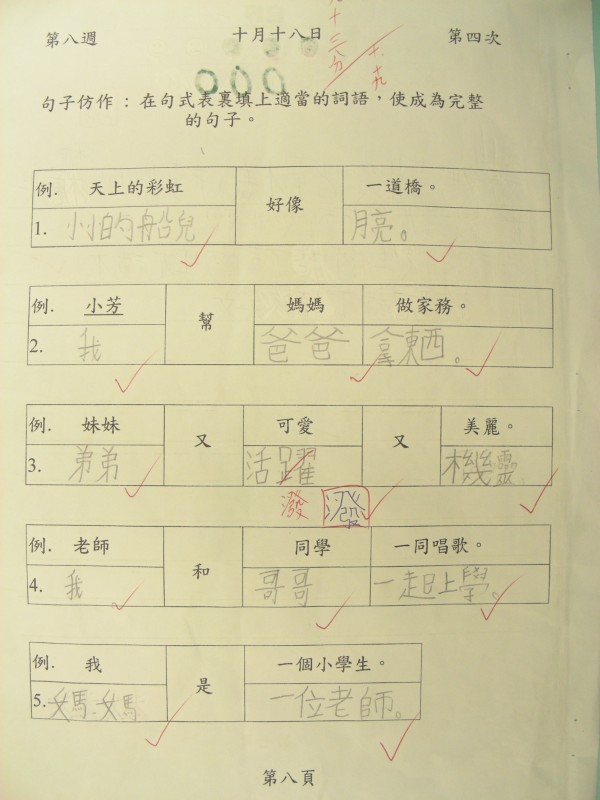 第八週 十月十八日 第四次
句子仿作：在句式表裏填上適當的詞語，使成為完整
的句子。
例. 天上的彩虹 好像 一道橋。
1. 小小的船兒 月亮。
例. 小芳 幫 媽媽 做家務。
2. 我 爸爸 拿東西。
例. 妹妹 又 可愛 又 美麗。
3. 弟弟 活躍 機靈。
潑 潑
例. 老師 和 同學 一同唱歌。
4. 我 哥哥 一起上學。
例. 我 是 一個小學生。
5. 媽媽 一位老師。
第八頁